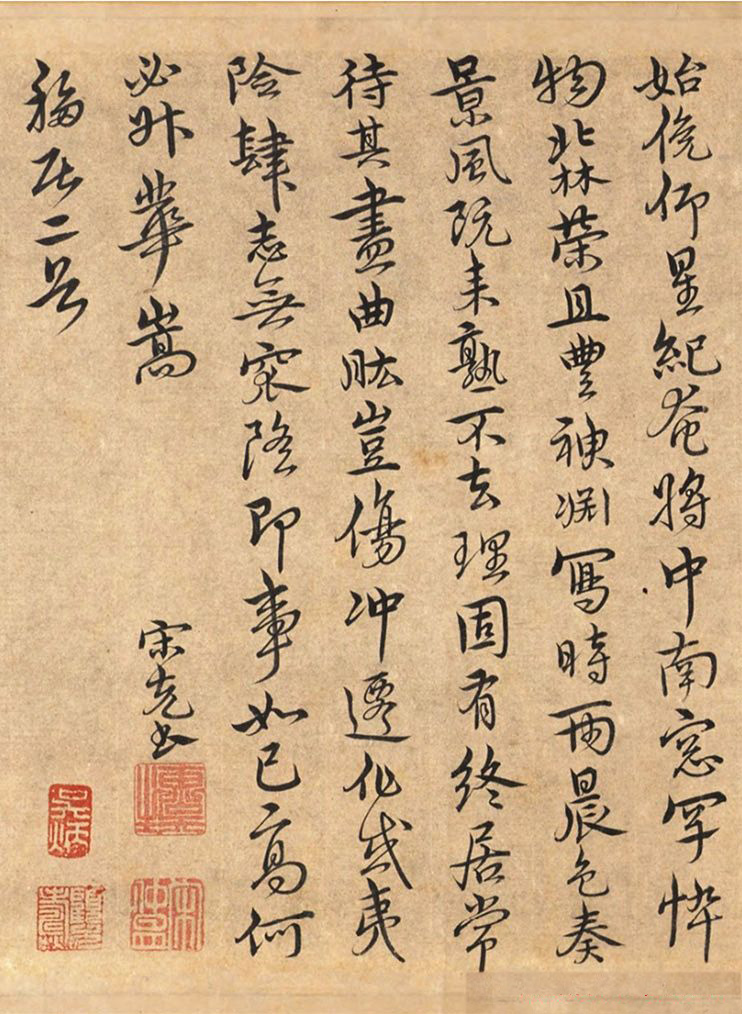 始俛仰星紀奄將中南窓罕悴
物北林榮且豐神渊寫時雨晨色奏
景風既来孰不去理固有終居常
待其盡曲肱豈傷冲遷化或夷
險肆志無窊隆即事如已高何
必升華嵩
宋克書
福 二号